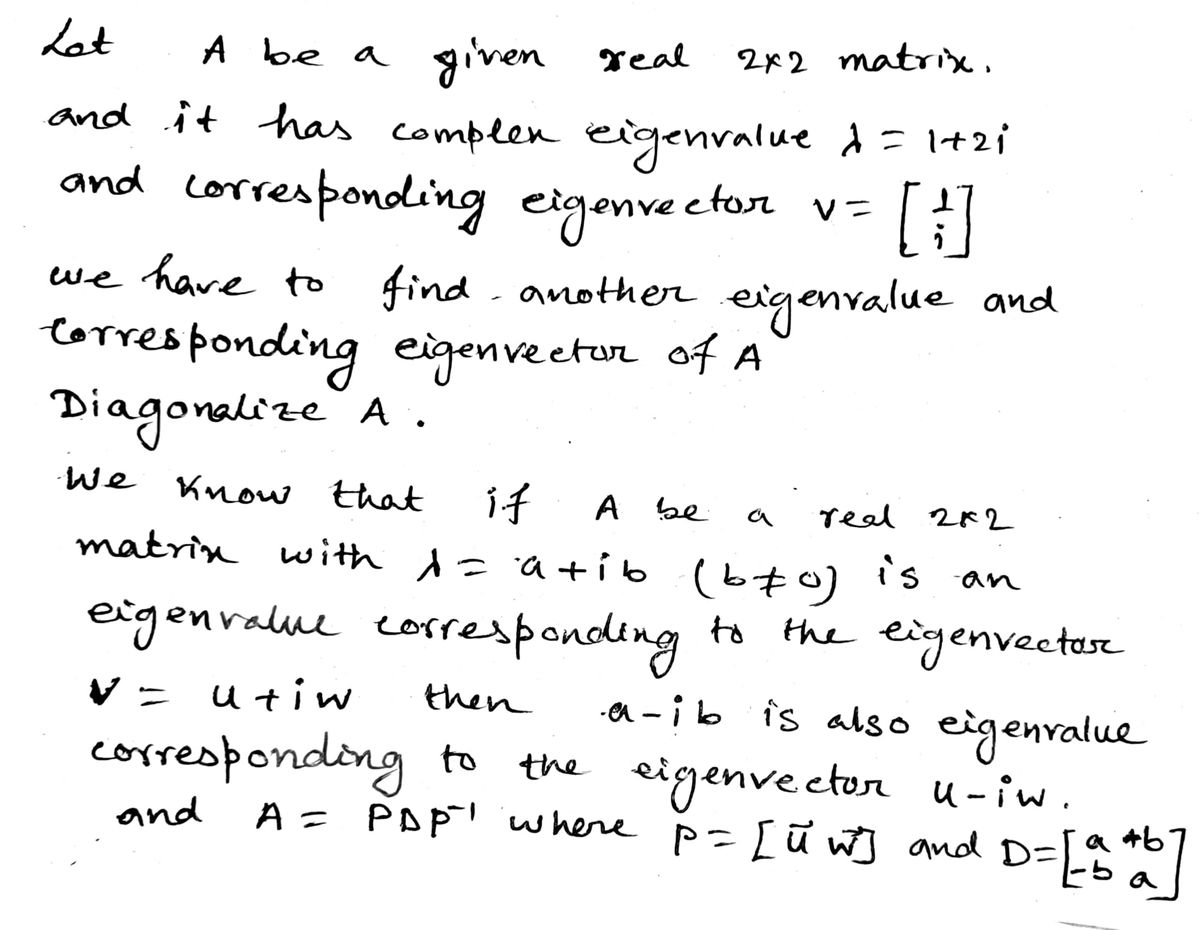 Let A be a given real 2×2 matrix.
and it has complex eigenvalue λ = 1+2i
and corresponding eigenvector v = [1 i]
we have to find another eigenvalue and
corresponding eigenvector of A
Diagonalize A.
We know that if A be a real 2×2
matrix with λ = a+ib (b≠0) is an
eigenvalue corresponding to the eigenvector
v = u+iw then a-ib is also eigenvalue
corresponding to the eigenvector u-iw.
and A = PDP⁻¹ where P = [ū w̄] and D = [a +b -b a]